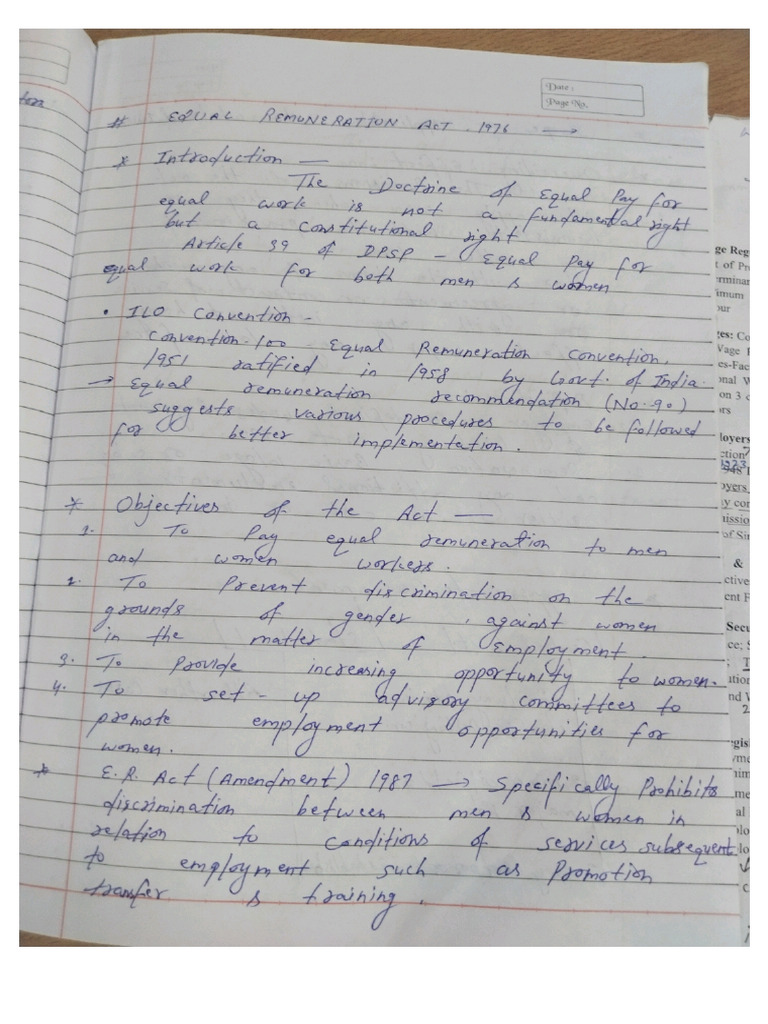 Date :
Page No.
# EQUAL REMUNERATION ACT. 1976 →
* Introduction —
The Doctrine of Equal Pay for
equal work is not a fundamental right
but a constitutional right
Article 39 of DPSP - Equal Pay for
equal work for both men & women
• ILO Convention -
Convention-100 Equal Remuneration Convention,
1951 ratified in 1958 by Govt. of India.
→ Equal remuneration recommendation (No.90)
suggests various procedures to be followed
for better implementation.
* Objectives of the Act —
1. To Pay equal remuneration to men
and women workers.
2. To Prevent discrimination on the
grounds of gender, against women
in the matter of Employment.
3. To Provide increasing opportunity to women.
4. To set-up advisory committees to
promote employment opportunities for
women.
* E.R. Act (Amendment) 1987 → Specifically Prohibits
discrimination between men & women in
relation to conditions of services subsequent
to employment such as Promotion
transfer & training.